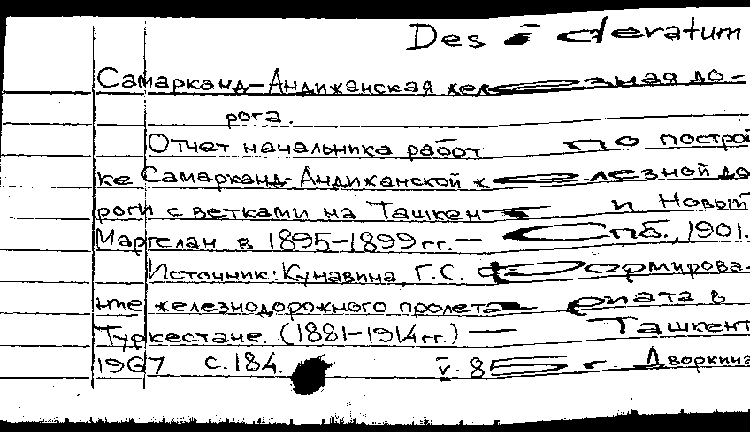 Desideratum
Самарканд-Андижанская железная до-
рога.
Отчет начальника работ по построй
ке Самарканд-Андижанской железной до
роги с ветками на Ташкент и Новый
Маргелан в 1895-1899 гг. — Спб., 1901.
Источник: Кунавина, Г.С. Формирова-
ние железнодорожного пролетариата в
Туркестане. (1881-1914 гг.) — Ташкент
1967 с. 184.
V. 85 г. Дворкина